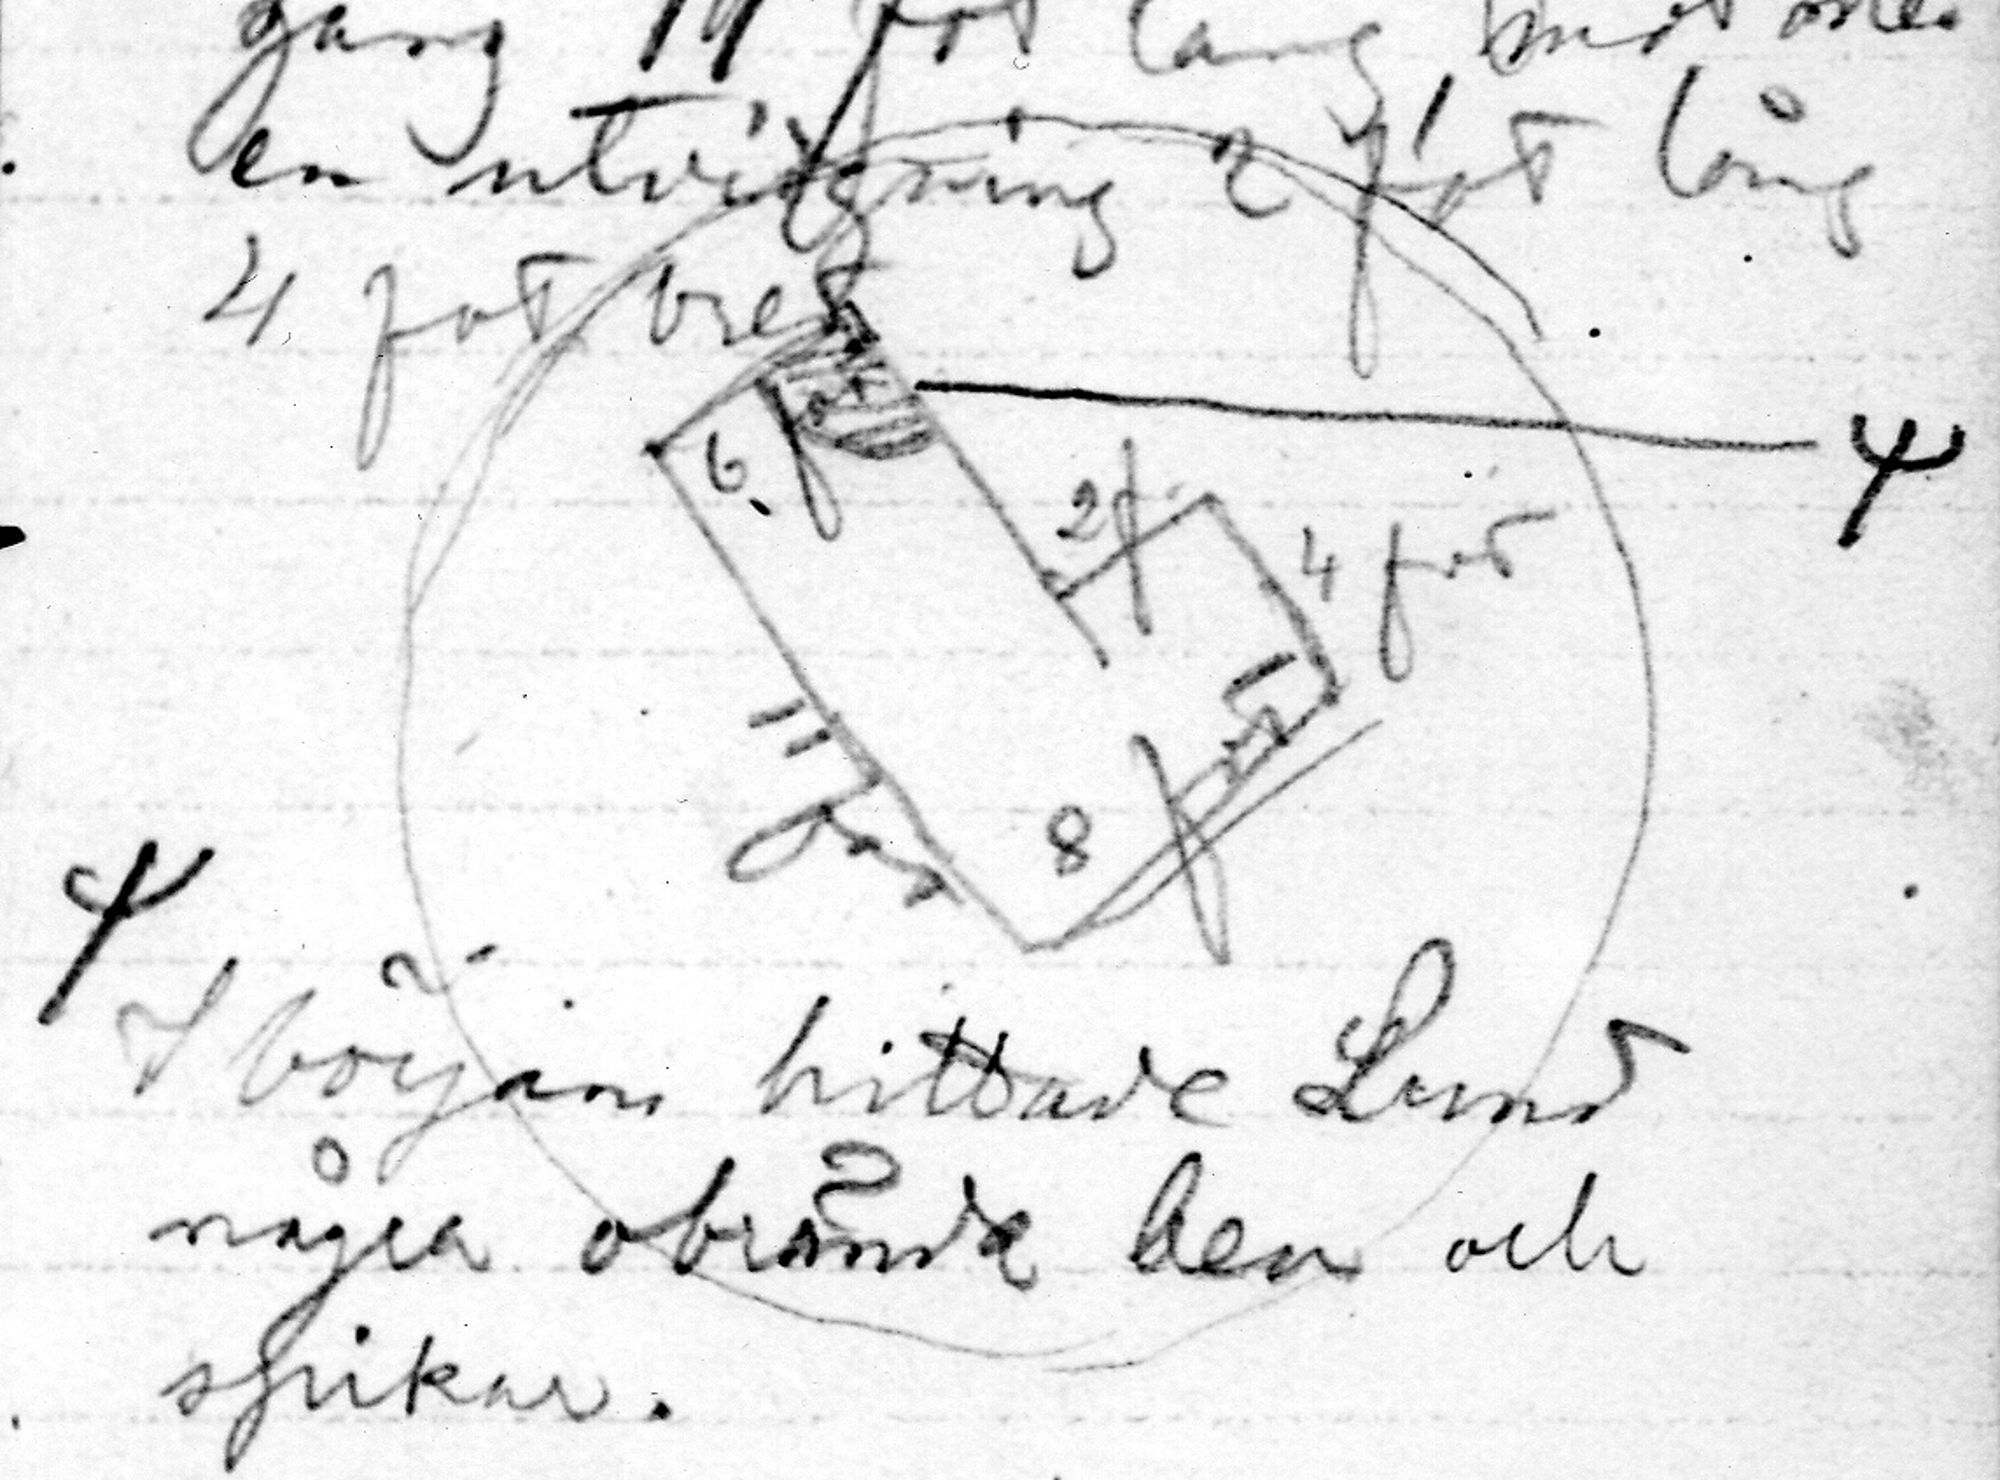 gång 14 fot lång, mot öster
en utvidgning 2 fot lång
4 fot bred
6. fot
2 f
4 fot
11 fot
8 fot
Ψ
Ψ
I början hittade Lund
några obrände ben och
spikar.